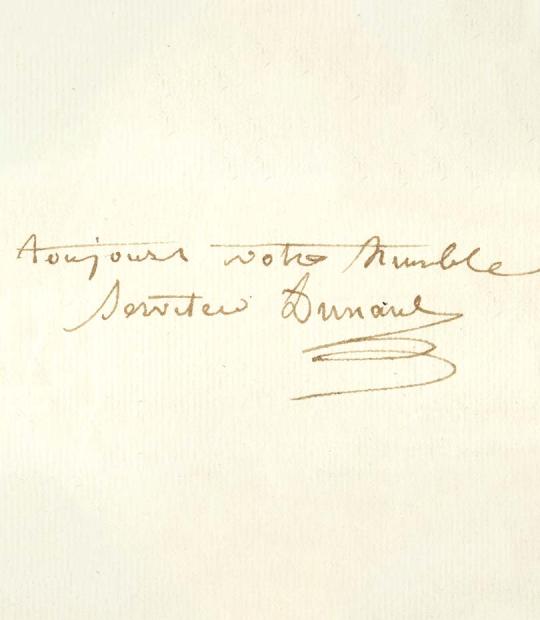 toujours votre humble
Serviteur Dunant